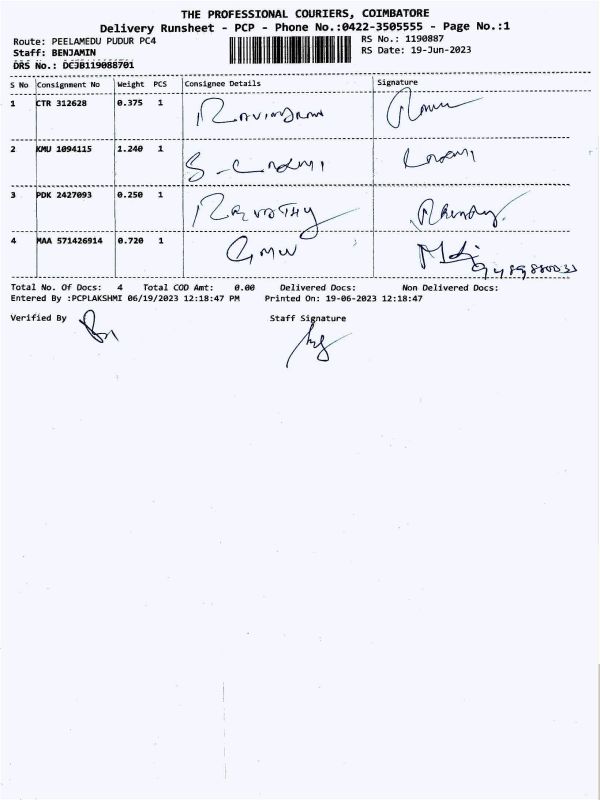 THE PROFESSIONAL COURIERS, COIMBATORE
Delivery Runsheet - PCP - Phone No.:0422-3505555 - Page No.:1
Route: PEELAMEDU PUDUR PC4 RS No.: 1190887
Staff: BENJAMIN RS Date: 19-Jun-2023
DRS No.: DCJB119088701
S No Consignment No Weight PCS Consignee Details Signature
1 CTR 312628 0.375 1
2 KMU 1094115 1.240 1
3 PDK 2427093 0.250 1 REVATHY
4 MAA 571426914 0.720 1
Total No. Of Docs: 4 Total COD Amt: 0.00 Delivered Docs: Non Delivered Docs:
Entered By :PCPLAKSHMI 06/19/2023 12:18:47 PM Printed On: 19-06-2023 12:18:47
Verified By Staff Signature